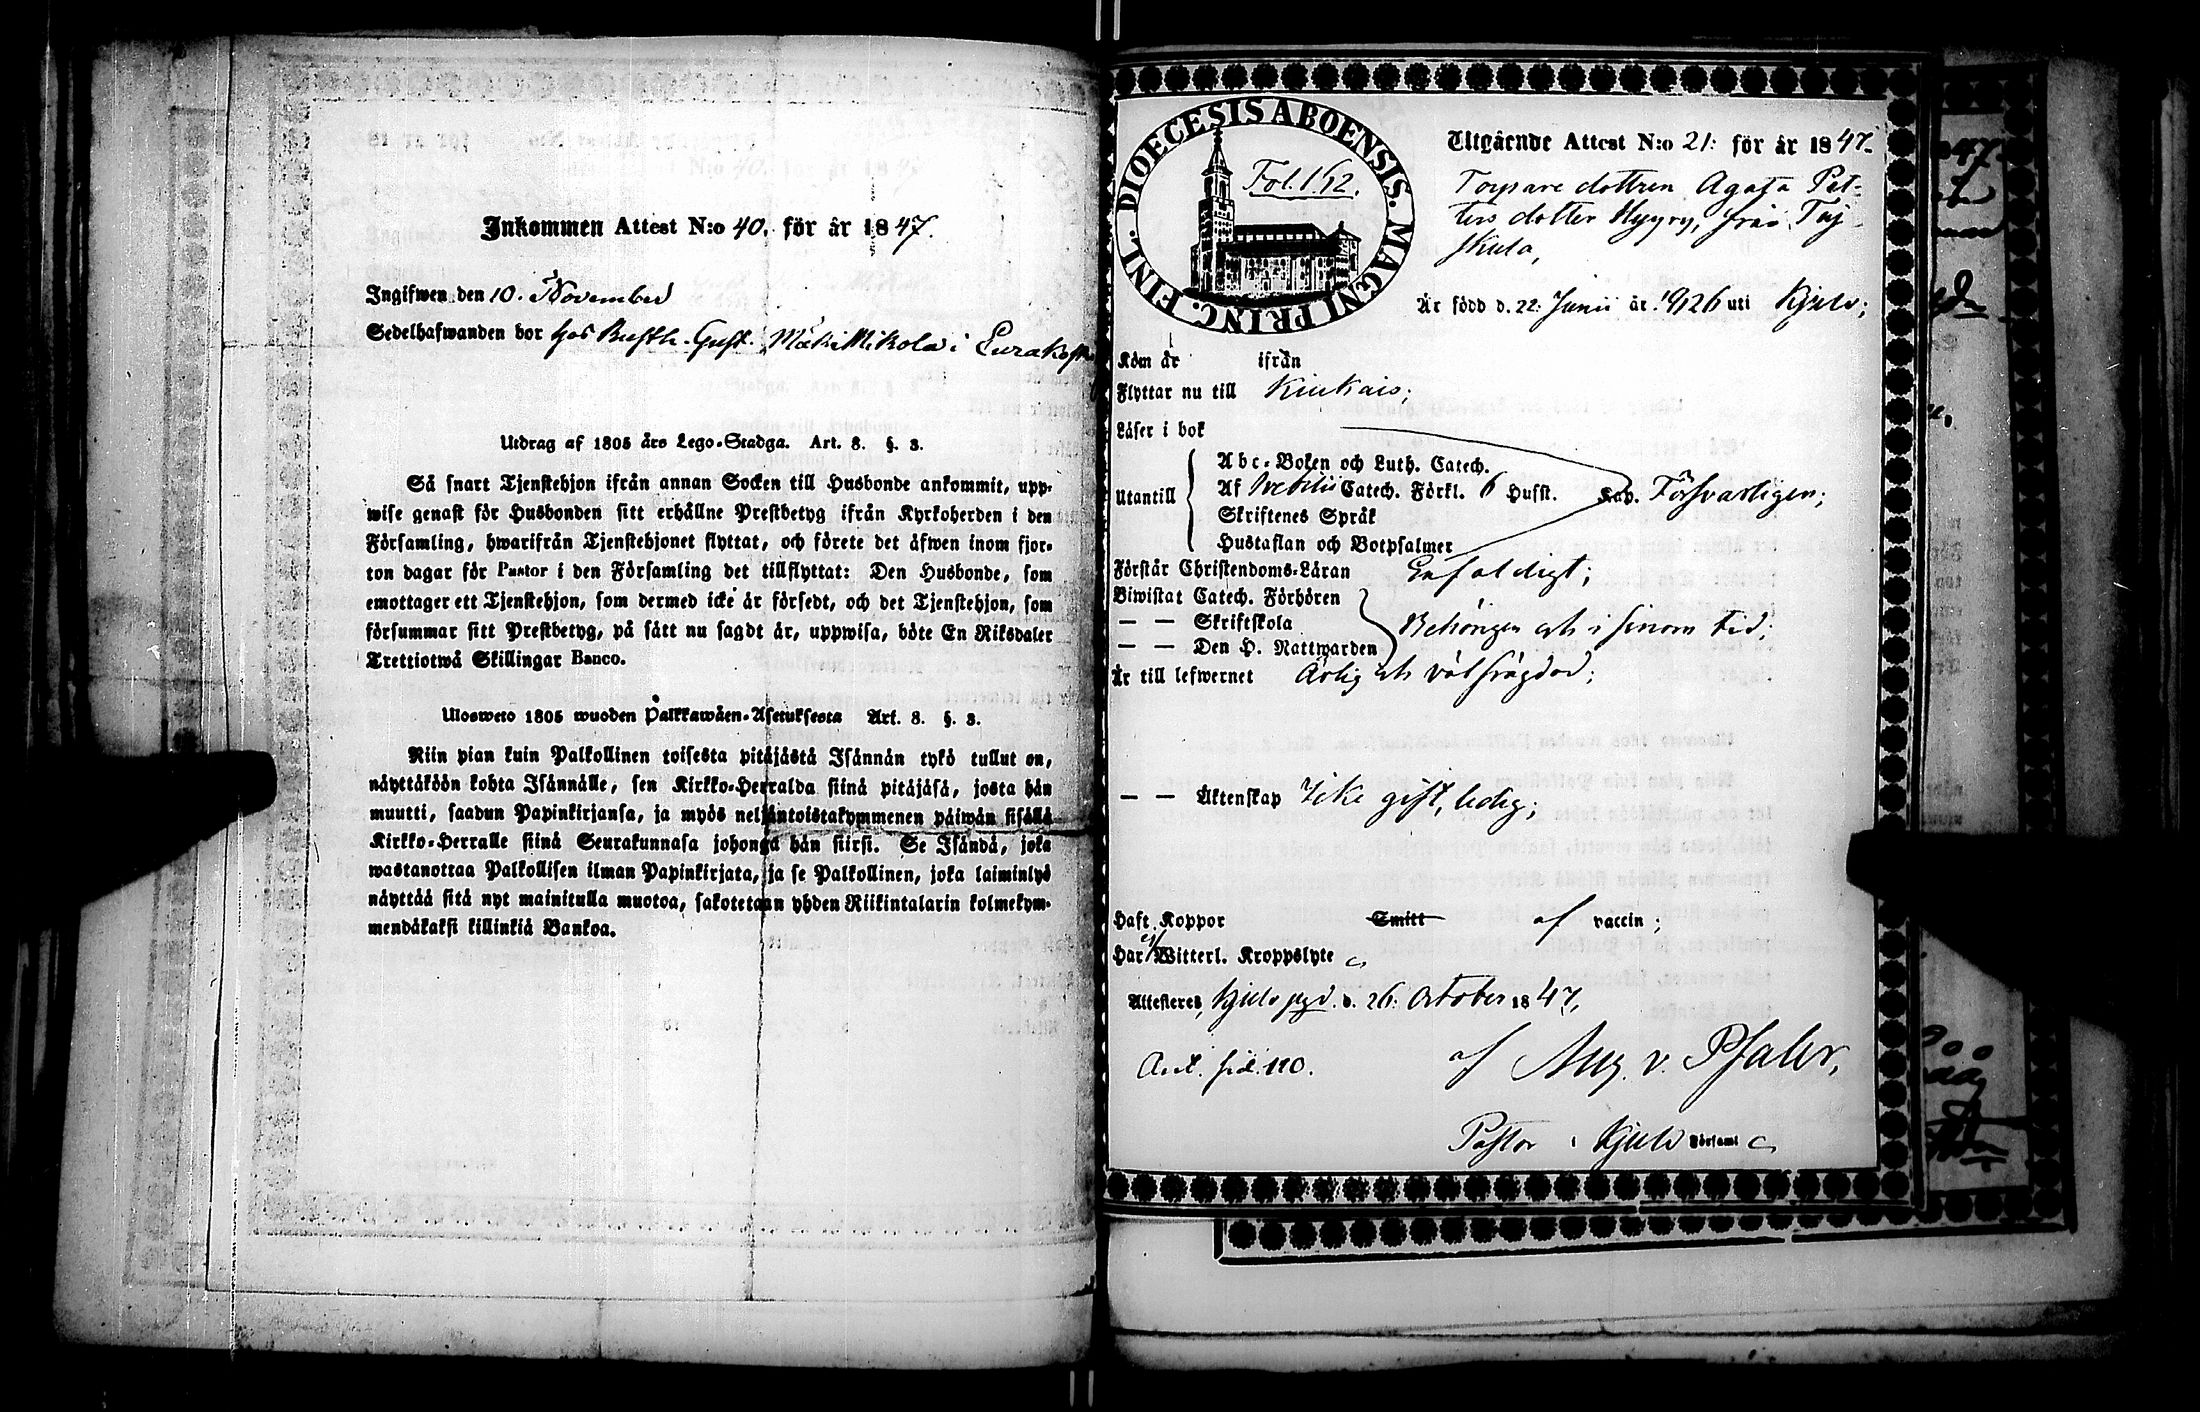 Inkommen Attest N:o 40. för år 1847.
Ingifwen den 10. November
Sedelhafwanden bor hos Rusth. Gust. MäkiMikola i Eurakoski
Utdrag af 1805 års Lego-Stadga. Art. 8. §. 3.
Så snart Tjenstehjon ifrån annan Socken till Husbonde ankommit, upp-
wise genast för Husbonden sitt erhållne Prestbetyg ifrån Kyrkoherden i den
Församling, hwarifrån Tjenstehjonet flyttat, och förete det äfwen inom fjor-
ton dagar för Pastor i den Församling det tillflyttat: Den Husbonde, som
emottager ett Tjenstehjon, som dermed icke är försedt, och det Tjenstehjon, som
försummar sitt Prestbetyg, på sätt nu sagdt är, uppwisa, böte En Riksdaler
Trettiotwå Skillingar Banco.
Ulosweto 1805 wuoden Palkkawäen-Asetuksesta Art. 8. §. 3.
Niin pian kuin Palkollinen toisesta pitäjästä Isännän tykö tullut on,
näyttäköön kohta Isännälle, sen Kirkko-Herralda siinä pitäjäsä, josta hän
muutti, saadun Papinkirjansa, ja myös neljäntoistakymmenen päiwän sisällä
Kirkko-Herralle siinä Seurakunnasa johonga hän siirsi. Se Isändä, joka
wastanottaa Palkollisen ilman Papinkirjata, ja se Palkollinen, joka laiminlyö
näyttää sitä nyt mainitulla muotoa, sakotetaan yhden Riikintalarin kolmekym-
mendäkaksi killinkiä Bankoa.
DIOECESIS ABOENSIS. MAGNI PRINC. FINL.
Fol. 162.
Utgående Attest N:o 21: för år 1847.
Torpare dottren Agata Pet-
ters dotter Hyyry, från Taj-
skula,
Är född d. 22: Junii år 1826 uti Kjulo;
Kom år ifrån
Flyttar nu till Kiukais;
Läser i bok
Abc-Boken och Luth. Catech.
Utantill Af Svebilii Catech. Förkl. 6 Husst. Kap. Försvarligen;
Skriftenes Språk
Hustaflan och Botpsalmer
Förstår Christendoms-Läran Enfaldigt;
Biwistat Catech. Förhören
— — Skriftskola Behörigen och i sinom tid;
— — Den H. Nattwarden
Är till lefwernet Ärlig och välfrägdad;
— — Äktenskap Icke gift, ledig;
Haft Koppor Smitt af vaccin;
Har ej Witterl. Kroppslyte
Attesteres, Kjulo pgd. d. 26. October 1847,
Ant. sid. 110. af Aug. v. Pfaler,
Pastor i Kjulo Församl